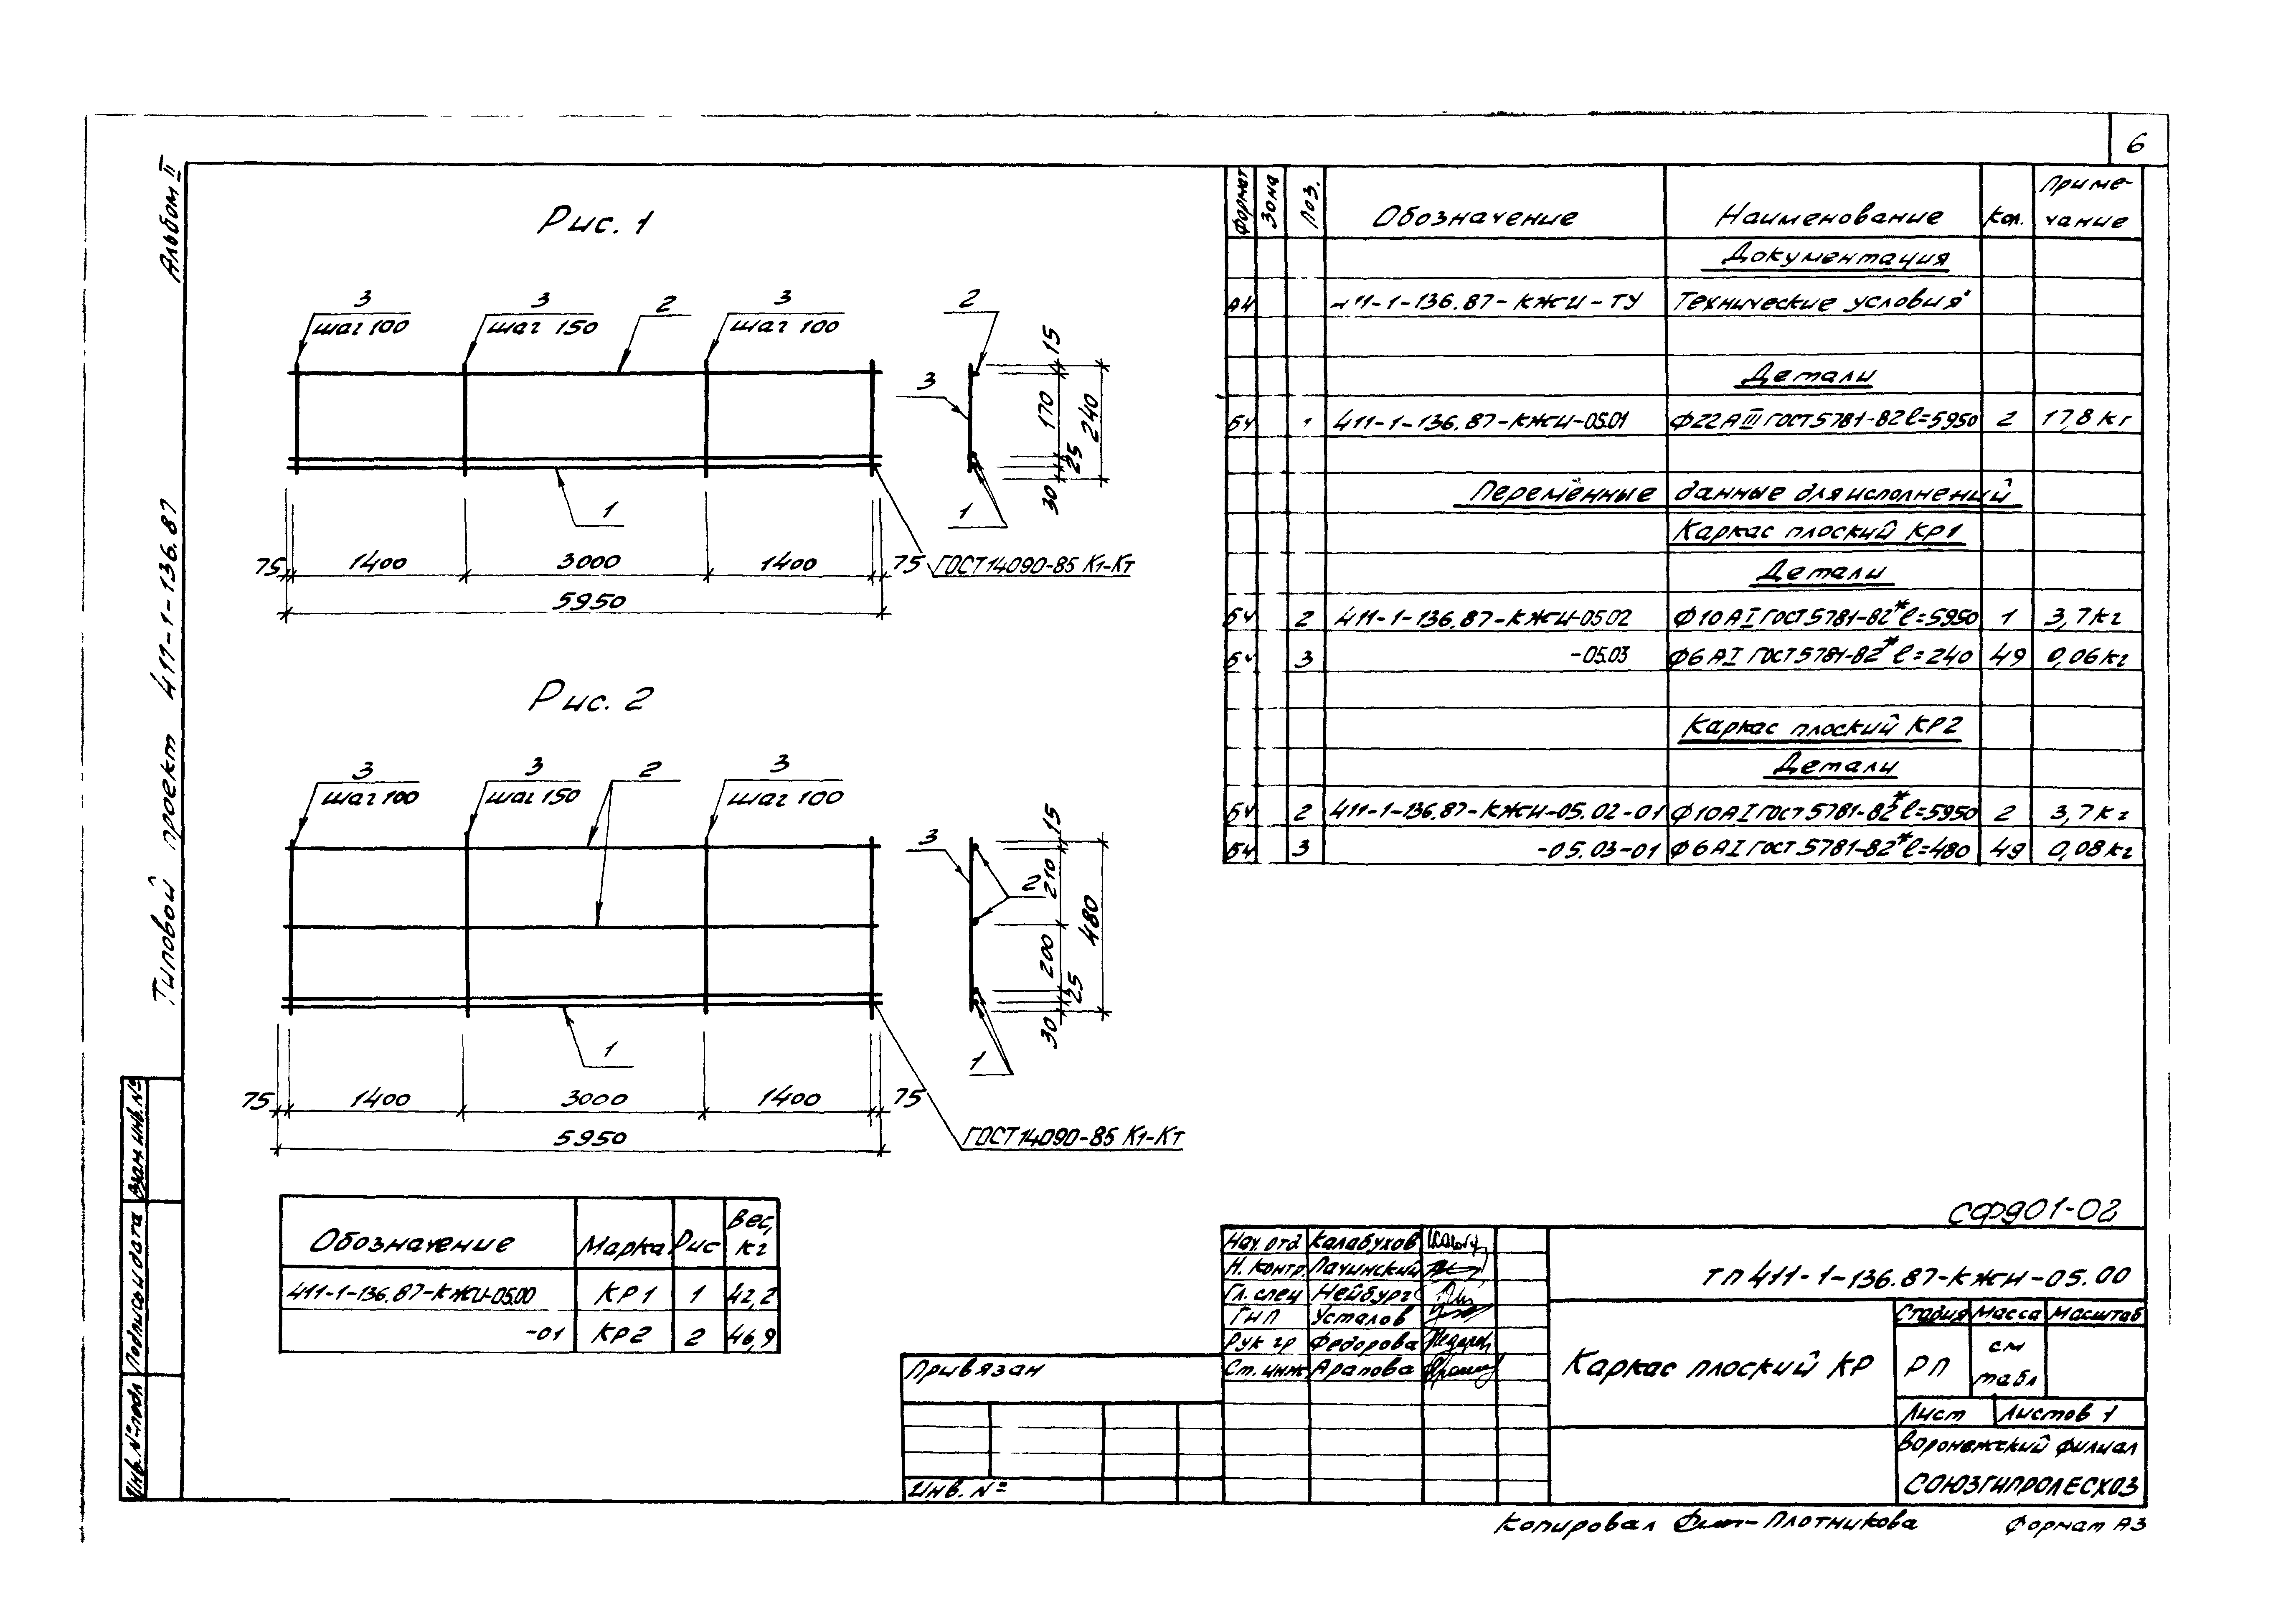 6
Альбом II
Типовой проект 411-1-136.87
Рис. 1
3
шаг 100
3
шаг 150
2
3
шаг 100
2
3
1
1
15
170
240
25
30
75
1400
3000
1400
75
ГОСТ 14090-85 К1-Кт
5950
Рис. 2
3
шаг 100
3
шаг 150
2
3
шаг 100
3
2
1
1
15
210
480
200
25
30
75
1400
3000
1400
75
5950
ГОСТ 14090-85 К1-Кт
Обозначение Марка Рис Вес, кг
411-1-136.87-КЖИ-05.00 КР1 1 42,2
-01 КР2 2 46,9
Формат Зона Поз. Обозначение Наименование Кол. Приме-
чание
Документация
А4 411-1-136.87-КЖИ-ТУ Технические условия
Детали
БЧ 1 411-1-136.87-КЖИ-05.01 Ф22АIII ГОСТ 5781-82 ℓ=5950 2 17,8 кг
Переменные данные для исполнений
Каркас плоский КР1
Детали
БЧ 2 411-1-136.87-КЖИ-05.02 Ф10АI ГОСТ 5781-82* ℓ=5950 1 3,7 кг
БЧ 3 -05.03 Ф6АI ГОСТ 5781-82* ℓ=240 49 0,06 кг
Каркас плоский КР2
Детали
БЧ 2 411-1-136.87-КЖИ-05.02-01 Ф10АI ГОСТ 5781-82* ℓ=5950 2 3,7 кг
БЧ 3 -05.03-01 Ф6АI ГОСТ 5781-82* ℓ=480 49 0,08 кг
СФ901-02
Нач. отд Калабухов
Н. контр. Лачинский
Гл. спец Нейбург
ГИП Усталов
Рук гр Федорова
Ст. инж Арапова
ТП 411-1-136.87-КЖИ-05.00
Каркас плоский КР
Стадия Масса Масштаб
РП см
табл
Лист Листов 1
Воронежский филиал
СОЮЗГИПРОЛЕСХОЗ
Привязан
Инв. №
Взам инв. №
Подпись и дата
Инв. № подл
Копировал Плотникова Формат А3